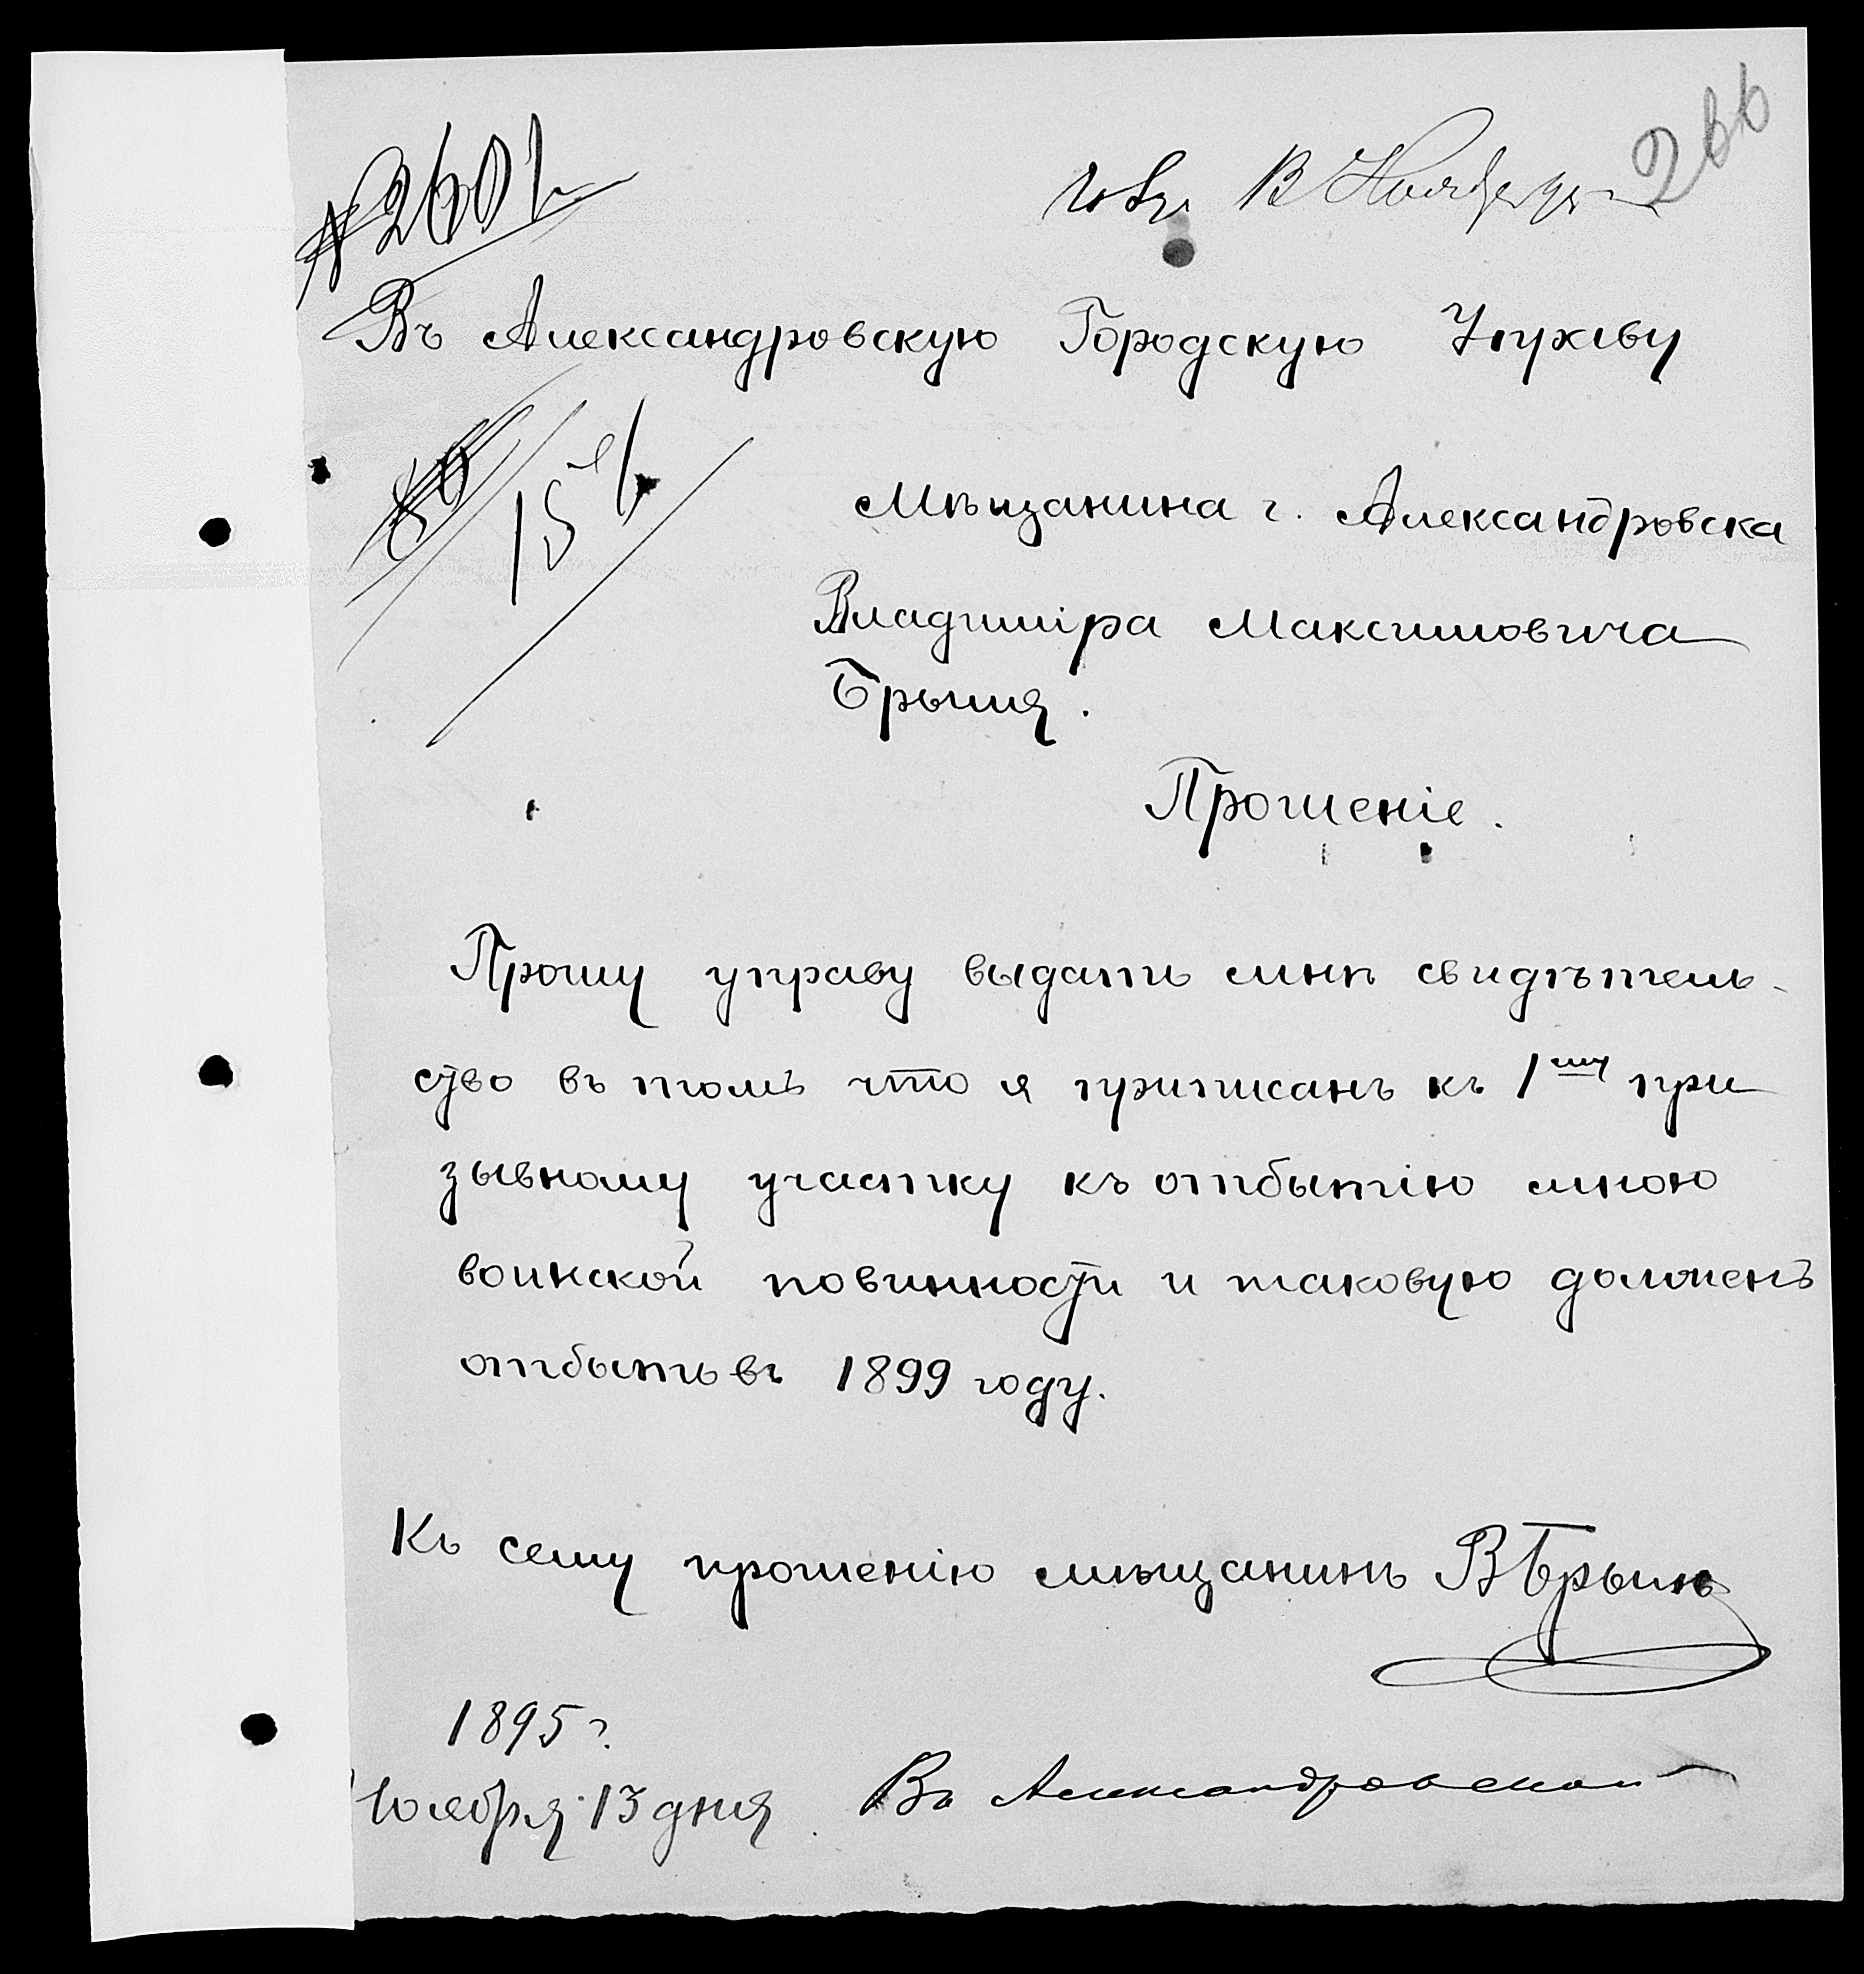 266
№ 2601
13 Ноября
Въ Александровскую Городскую Управу
15
Мѣщанина г. Александровска
Владиміра Максимовича
Брыля.
Прошеніе.
Прошу управу выдать мнѣ свидѣтель-
ство въ томъ что я приписанъ къ 1му при
зывному участку къ отбытію мною
воинской повинности и таковую долженъ
отбыть въ 1899 году.
Къ сему прошенію мѣщанинъ В Брыль
1895 г.
Ноября 13 дня. Въ Александровской